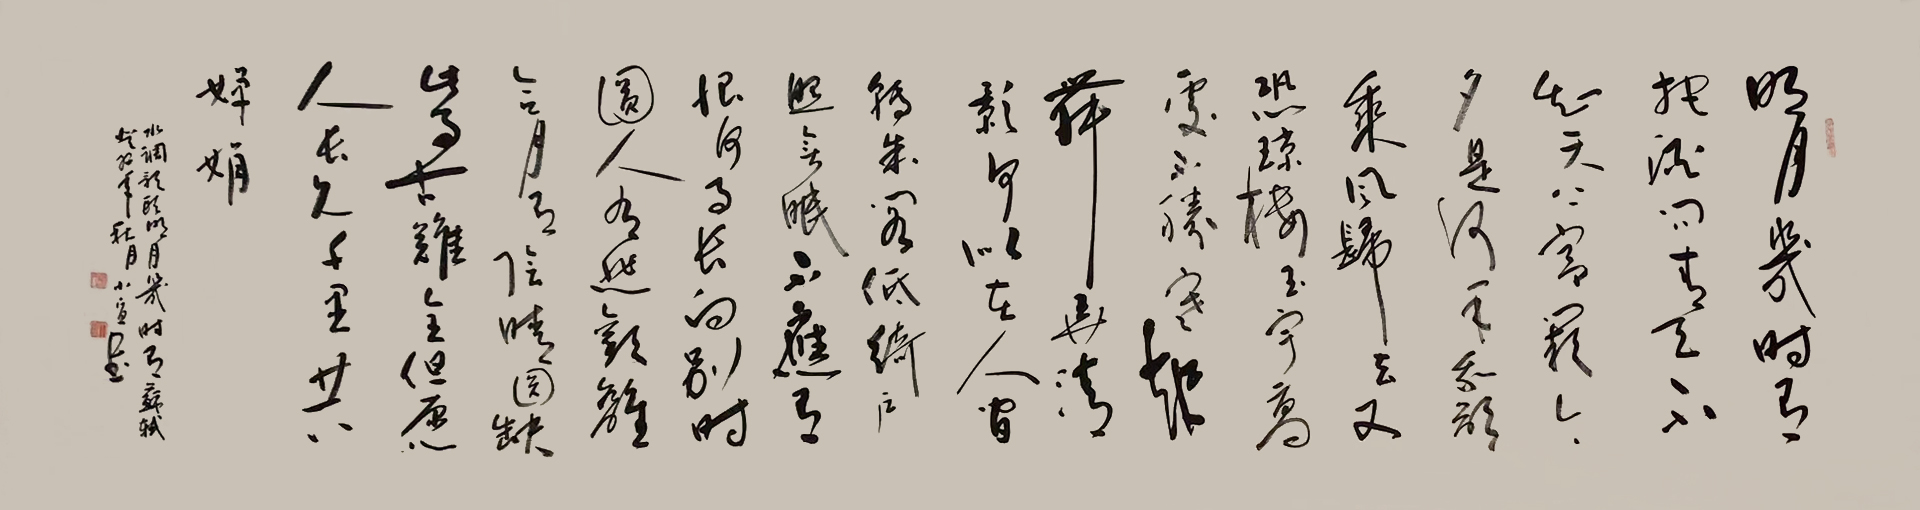 明月幾时有
把酒问青天不
知天上宫闕今
夕是何年我欲
乘风歸去又
恐瓊楼玉宇高
處不勝寒起
舞弄清
影何似在人间
轉朱阁低綺户
照無眠不應有
恨何事长向别时
圆人有悲歡離
合月有陰晴圆缺
此事古難全但愿
人长久千里共
嬋娟
水调歌頭明月幾时有蘇軾
年秋月小宣书